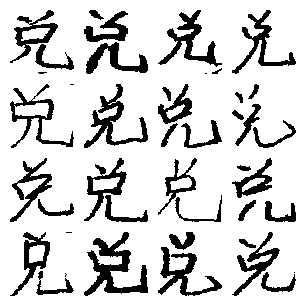 兑兑兑兑
兑兑兑兑
兑兑兑兑
兑兑兑兑